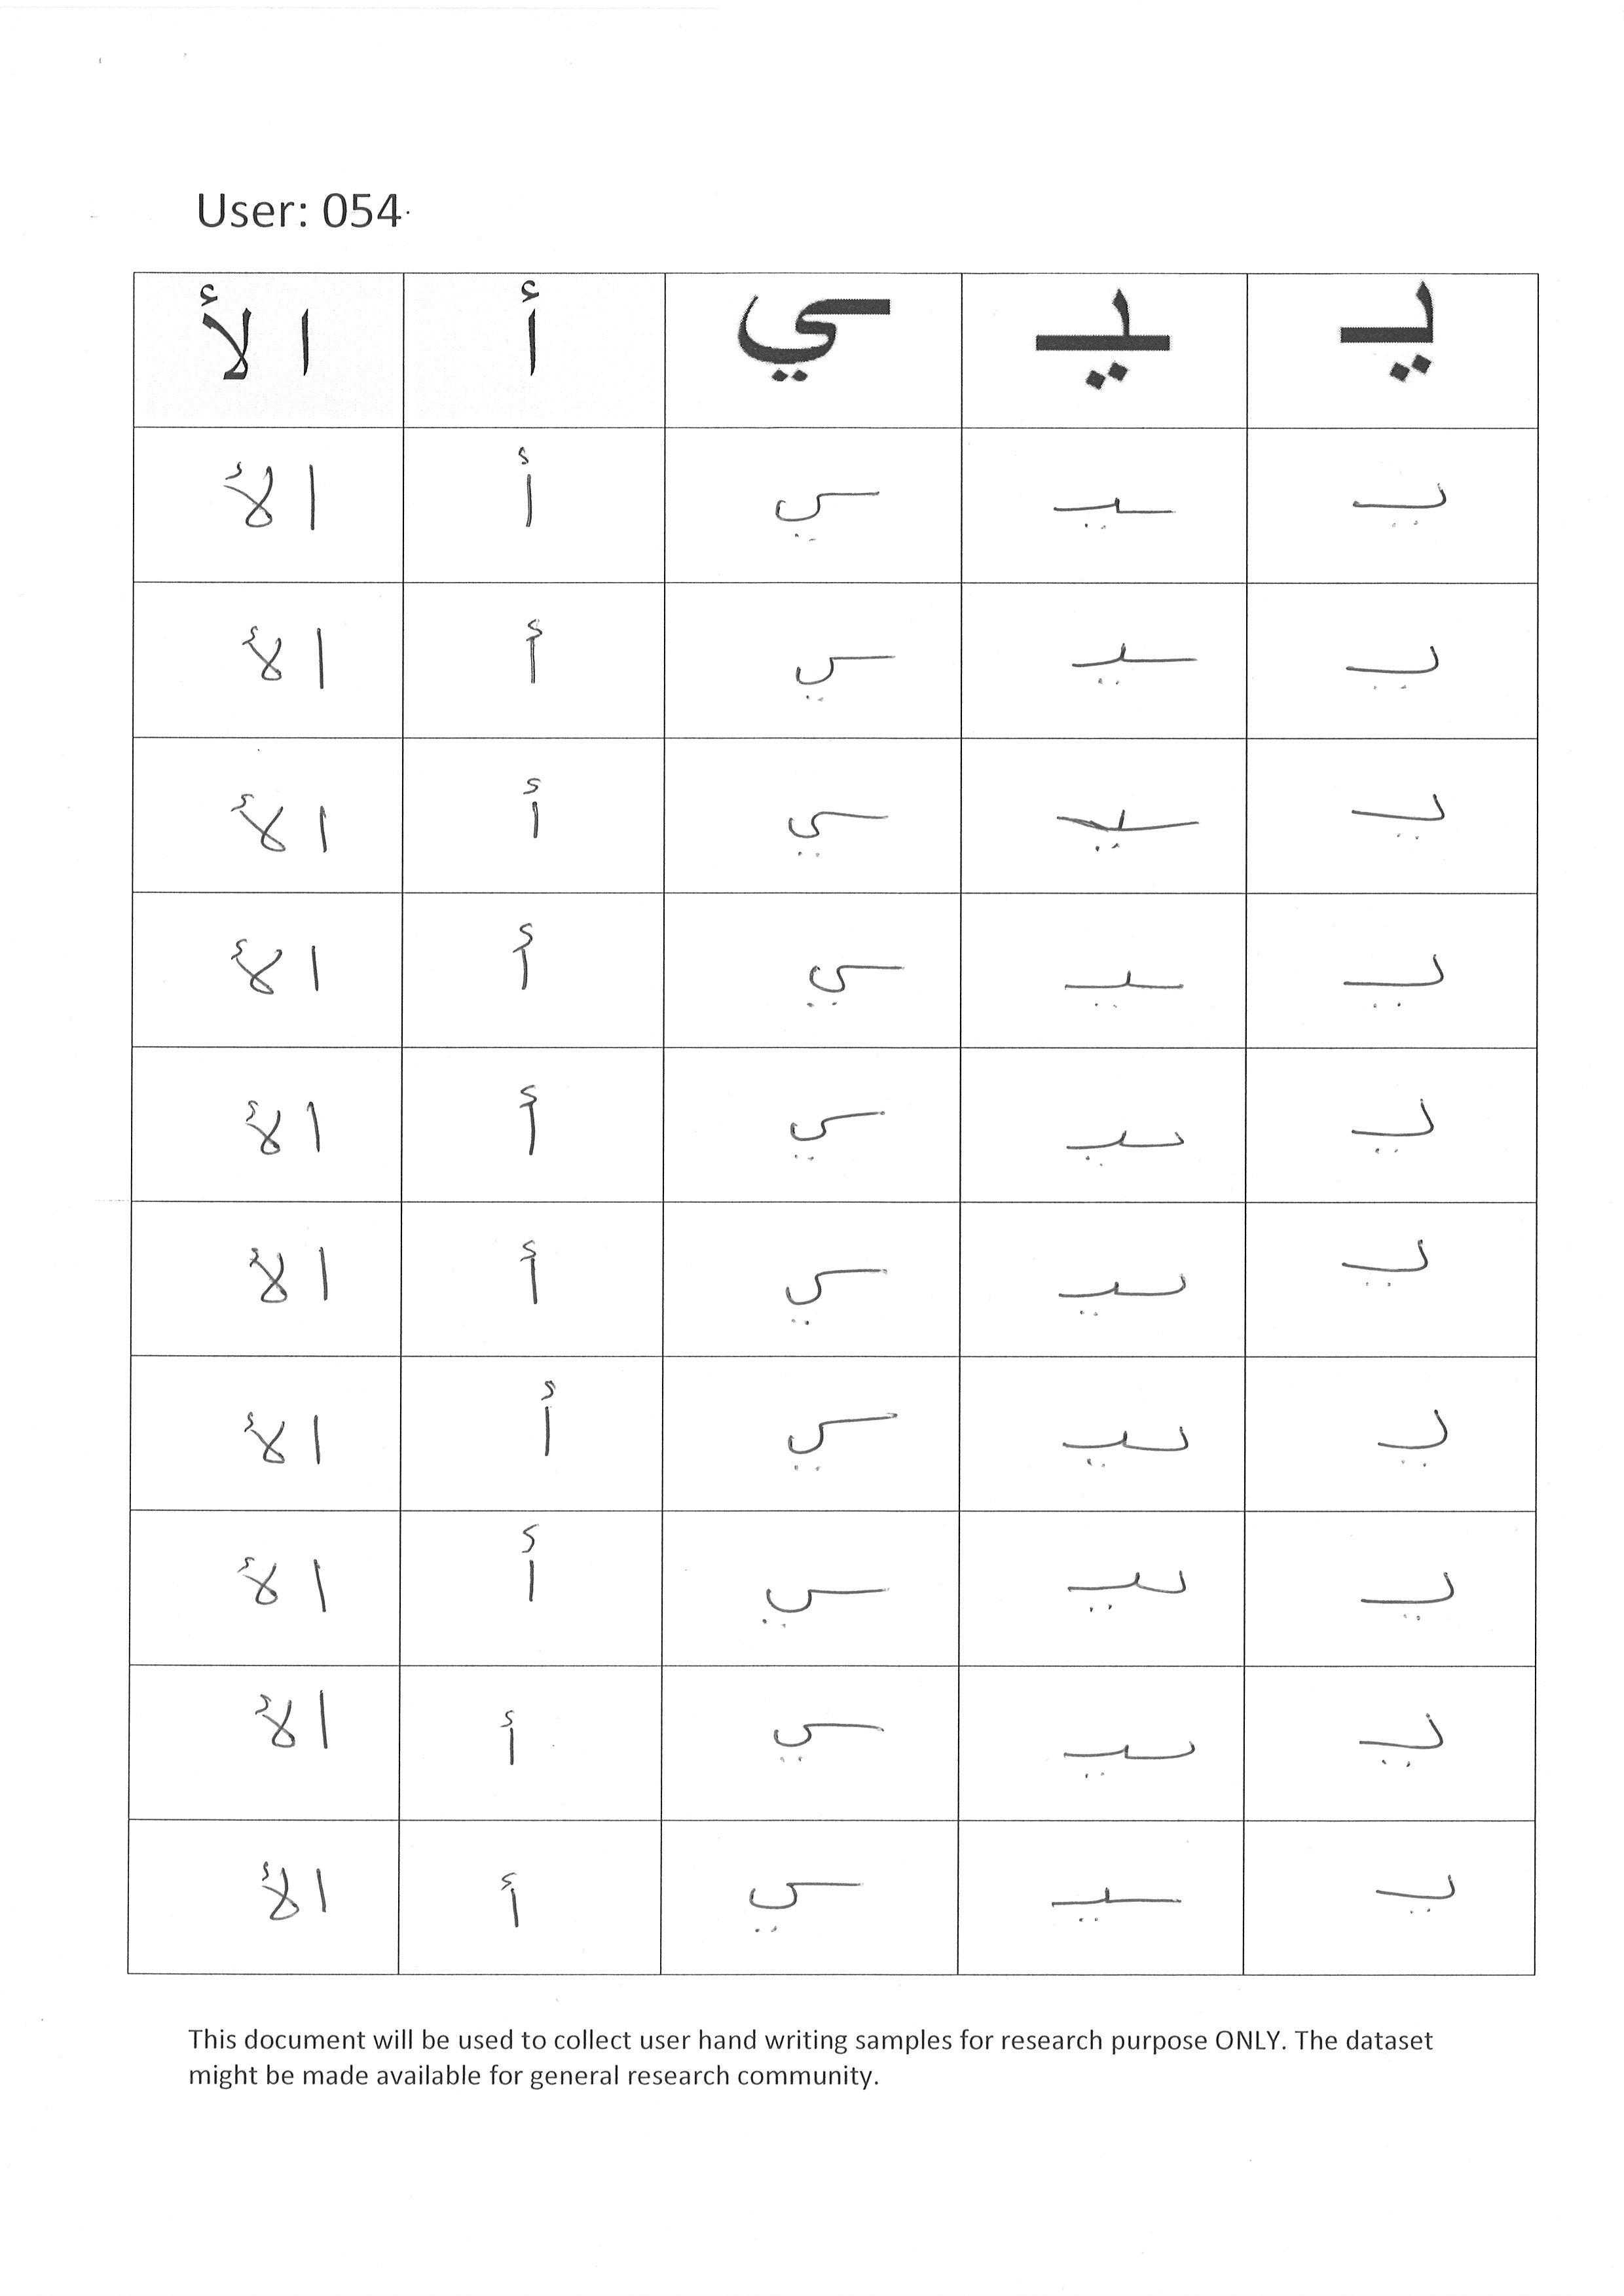 User: 054
يـ ـيـ ـي أ الأ
يـ ـيـ ـي أ الأ
يـ ـيـ ـي أ الأ
يـ ـيـ ـي أ الأ
يـ ـيـ ـي أ الأ
يـ ـيـ ـي أ الأ
يـ ـيـ ـي أ الأ
يـ ـيـ ـي أ الأ
يـ ـيـ ـي أ الأ
يـ ـيـ ـي أ الأ
يـ ـيـ ـي أ الأ
This document will be used to collect user hand writing samples for research purpose ONLY. The dataset
might be made available for general research community.